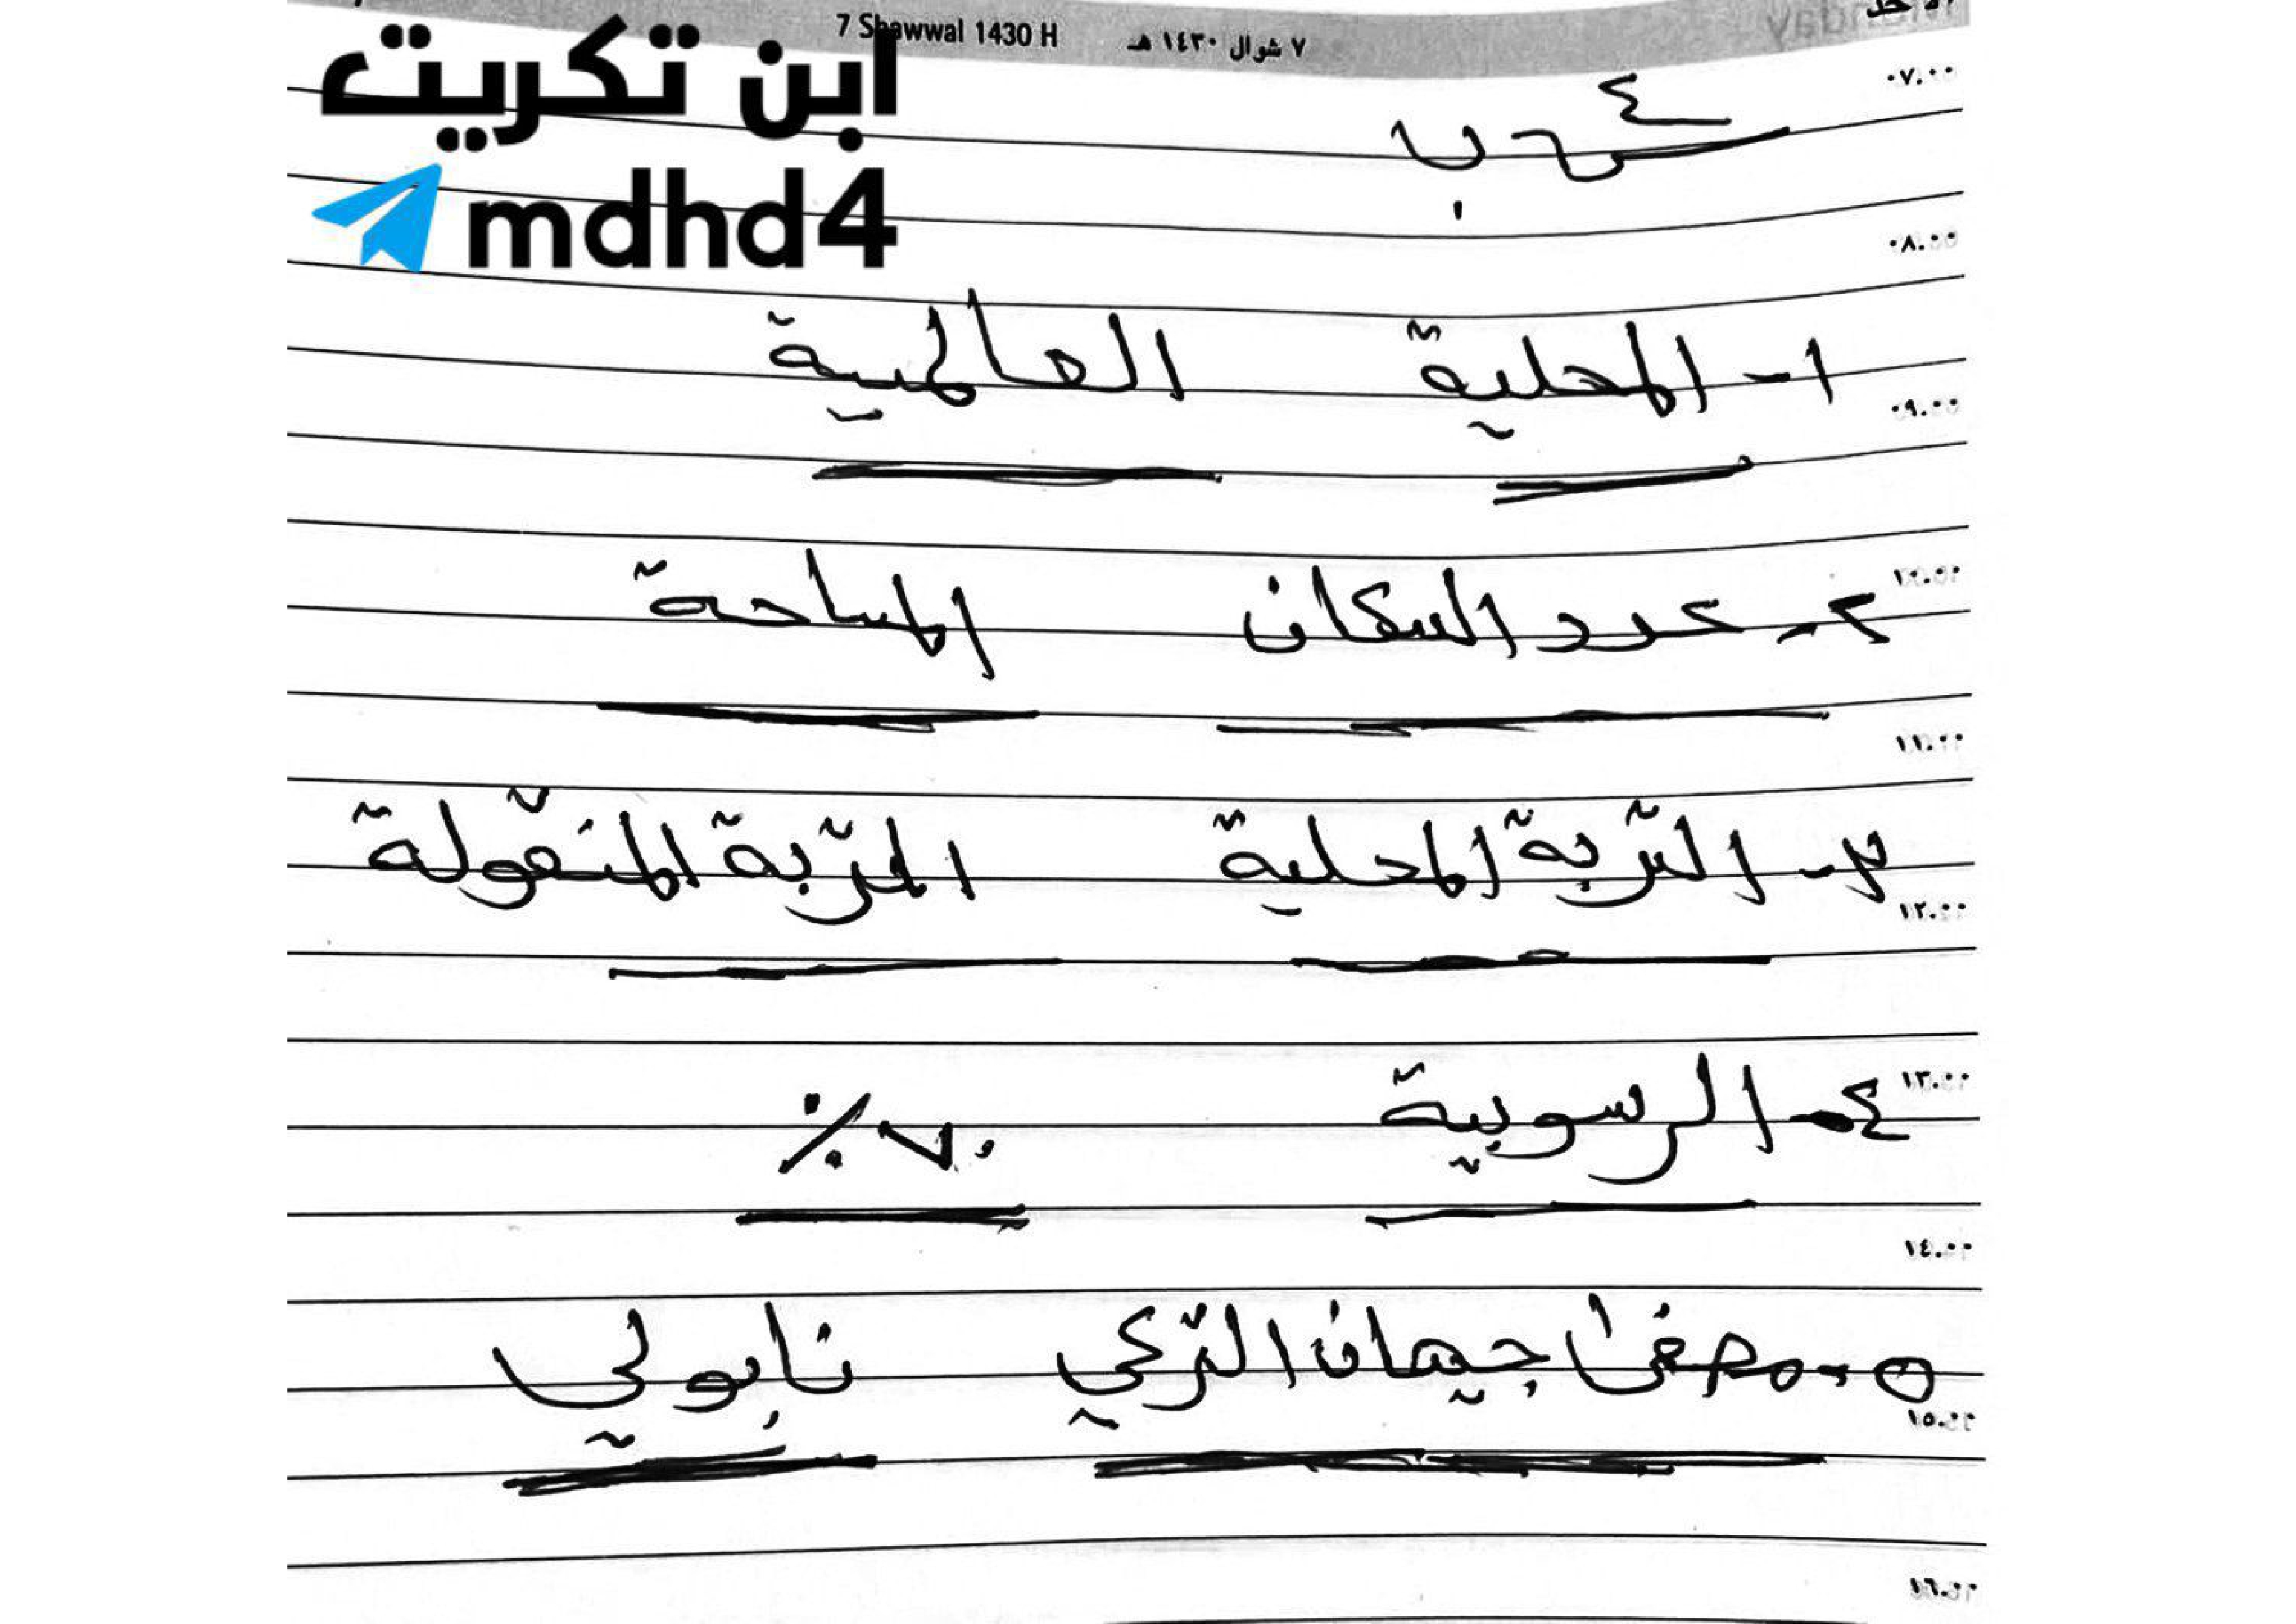 الأحد
7 Shawwal 1430 H ٧ شوال ١٤٣٠ هـ
ابن تكريت
mdhd4
٠٧.٠٠
س٤ ب
٠٨.٠٠
١- المحلية العالمية
٠٩.٠٠
١٠.٠٠
٢- عدد السكان المساحة
١١.٠٠
٣- التربة المحلية التربة المنقولة
١٢.٠٠
١٣.٠٠
٤- الرسوبية ٧٠٪
١٤.٠٠
٥- مصفى جيهان التركي نابولي
١٥.٠٠
١٦.٠٠